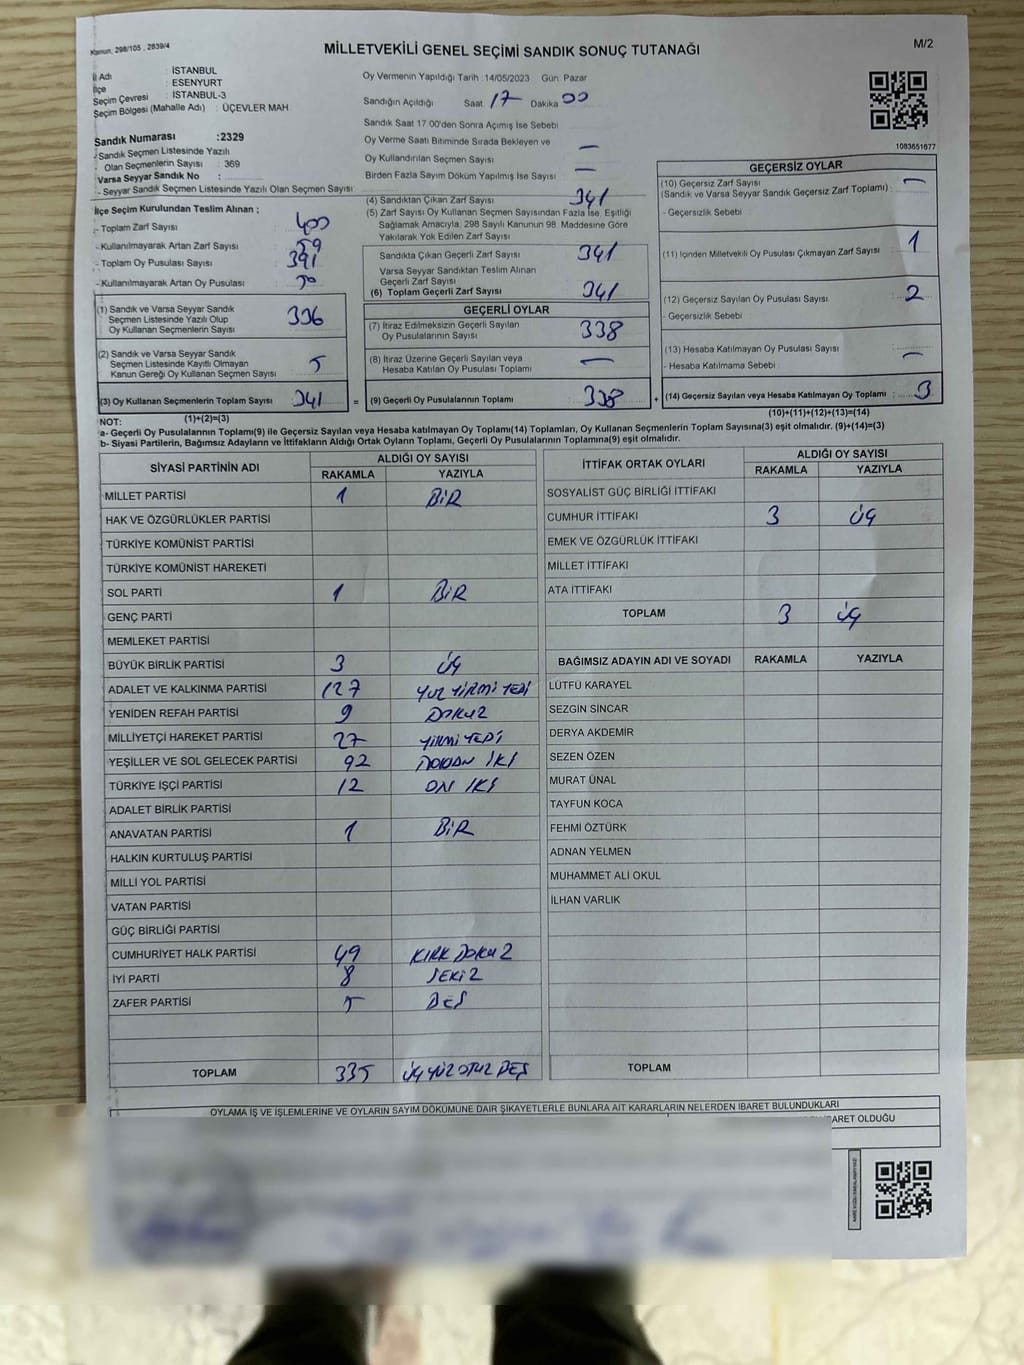 Kanun, 298/105 , 2839/4
MİLLETVEKİLİ GENEL SEÇİMİ SANDIK SONUÇ TUTANAĞI
M/2
İl Adı : İSTANBUL
İlçe : ESENYURT
Seçim Çevresi : İSTANBUL-3
Seçim Bölgesi (Mahalle Adı) : ÜÇEVLER MAH.
Sandık Numarası :2329
- Sandık Seçmen Listesinde Yazılı
Olan Seçmenlerin Sayısı : 369
Varsa Seyyar Sandık No :
- Seyyar Sandık Seçmen Listesinde Yazılı Olan Seçmen Sayısı :
Oy Vermenin Yapıldığı Tarih :14/05/2023 Gün: Pazar
Sandığın Açıldığı Saat: 17 Dakika: 00
Sandık Saat 17.00'den Sonra Açımış İse Sebebi
Oy Verme Saati Bitiminde Sırada Bekleyen ve —
Oy Kullandırılan Seçmen Sayısı
Birden Fazla Sayım Döküm Yapılmış İse Sayısı —
1083651677
İlçe Seçim Kurulundan Teslim Alınan ;
- Toplam Zarf Sayısı : 400
- Kullanılmayarak Artan Zarf Sayısı : 59
- Toplam Oy Pusulası Sayısı : 391
- Kullanılmayarak Artan Oy Pusulası : 50
(1) Sandık ve Varsa Seyyar Sandık
Seçmen Listesinde Yazılı Olup
Oy Kullanan Seçmenlerin Sayısı : 336
(2) Sandık ve Varsa Seyyar Sandık
Seçmen Listesinde Kayıtlı Olmayan
Kanun Gereği Oy Kullanan Seçmen Sayısı : 5
(3) Oy Kullanan Seçmenlerin Toplam Sayısı : 341
(1)+(2)=(3)
(4) Sandıktan Çıkan Zarf Sayısı 341
(5) Zarf Sayısı Oy Kullanan Seçmen Sayısından Fazla İse, Eşitliği
Sağlamak Amacıyla, 298 Sayılı Kanunun 98. Maddesine Göre
Yakılarak Yok Edilen Zarf Sayısı
Sandıkta Çıkan Geçerli Zarf Sayısı 341
Varsa Seyyar Sandıktan Teslim Alınan
Geçerli Zarf Sayısı
(6) Toplam Geçerli Zarf Sayısı 341
GEÇERLİ OYLAR
(7) İtiraz Edilmeksizin Geçerli Sayılan
Oy Pusulalarının Sayısı 338
(8) İtiraz Üzerine Geçerli Sayılan veya
Hesaba Katılan Oy Pusulası Toplamı —
= (9) Geçerli Oy Pusulalarının Toplamı 338
GEÇERSİZ OYLAR
(10) Geçersiz Zarf Sayısı —
(Sandık ve Varsa Seyyar Sandık Geçersiz Zarf Toplamı) :
- Geçersizlik Sebebi :
(11) İçinden Milletvekili Oy Pusulası Çıkmayan Zarf Sayısı : 1
(12) Geçersiz Sayılan Oy Pusulası Sayısı : 2
- Geçersizlik Sebebi :
(13) Hesaba Katılmayan Oy Pusulası Sayısı : —
- Hesaba Katılmama Sebebi :
+ (14) Geçersiz Sayılan veya Hesaba Katılmayan Oy Toplamı : 3
(10)+(11)+(12)+(13)=(14)
NOT:
a- Geçerli Oy Pusulalarının Toplamı(9) ile Geçersiz Sayılan veya Hesaba katılmayan Oy Toplamı(14) Toplamları, Oy Kullanan Seçmenlerin Toplam Sayısına(3) eşit olmalıdır. (9)+(14)=(3)
b- Siyasi Partilerin, Bağımsız Adayların ve İttifakların Aldığı Ortak Oyların Toplamı, Geçerli Oy Pusulalarının Toplamına(9) eşit olmalıdır.
SİYASİ PARTİNİN ADI ALDIĞI OY SAYISI
RAKAMLA YAZIYLA
MİLLET PARTİSİ 1 BİR
HAK VE ÖZGÜRLÜKLER PARTİSİ
TÜRKİYE KOMÜNİST PARTİSİ
TÜRKİYE KOMÜNİST HAREKETİ
SOL PARTİ 1 BİR
GENÇ PARTİ
MEMLEKET PARTİSİ
BÜYÜK BİRLİK PARTİSİ 3 ÜÇ
ADALET VE KALKINMA PARTİSİ 127 YÜZ YİRMİ YEDİ
YENİDEN REFAH PARTİSİ 9 DOKUZ
MİLLİYETÇİ HAREKET PARTİSİ 27 YİRMİ YEDİ
YEŞİLLER VE SOL GELECEK PARTİSİ 92 DOKSAN İKİ
TÜRKİYE İŞÇİ PARTİSİ 12 ON İKİ
ADALET BİRLİK PARTİSİ
ANAVATAN PARTİSİ 1 BİR
HALKIN KURTULUŞ PARTİSİ
MİLLİ YOL PARTİSİ
VATAN PARTİSİ
GÜÇ BİRLİĞİ PARTİSİ
CUMHURİYET HALK PARTİSİ 49 KIRK DOKUZ
İYİ PARTİ 8 SEKİZ
ZAFER PARTİSİ 5 BEŞ
TOPLAM 335 ÜÇ YÜZ OTUZ BEŞ
İTTİFAK ORTAK OYLARI ALDIĞI OY SAYISI
RAKAMLA YAZIYLA
SOSYALİST GÜÇ BİRLİĞİ İTTİFAKI
CUMHUR İTTİFAKI 3 ÜÇ
EMEK VE ÖZGÜRLÜK İTTİFAKI
MİLLET İTTİFAKI
ATA İTTİFAKI
TOPLAM 3 ÜÇ
BAĞIMSIZ ADAYIN ADI VE SOYADI RAKAMLA YAZIYLA
LÜTFÜ KARAYEL
SEZGİN SİNCAR
DERYA AKDEMİR
SEZEN ÖZEN
MURAT ÜNAL
TAYFUN KOCA
FEHMİ ÖZTÜRK
ADNAN YELMEN
MUHAMMET ALİ OKUL
İLHAN VARLIK
TOPLAM
OYLAMA İŞ VE İŞLEMLERİNE VE OYLARIN SAYIM DÖKÜMÜNE DAİR ŞİKAYETLERLE BUNLARA AİT KARARLARIN NELERDEN İBARET BULUNDUKLARI
BARET OLDUĞU